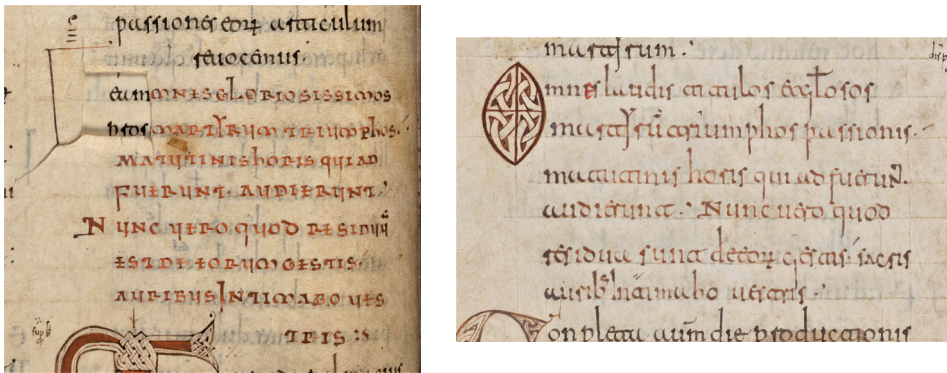 passiones eorum articulum
euocemus.
eum omnis gloriosissimos
beatos martyrum triumphos.
MATUTINIS hORIS QUI AD
FUERUNT. AUDIERUNT.
NUNC UERO QUOD RESIDUŪ
EST DE EORUM GESTIS.
AURIBUS INTIMABO UES
TRIS:
martyrum.
Omnes laudis titulos
martyrū triumphos passionis.
matutinis horis qui adfuerunt.
audierunt. Nunc uero quod
residua sunt de eorum gestis. sacris
aurib; intimabo uestris.
Conpleta cum die productionis